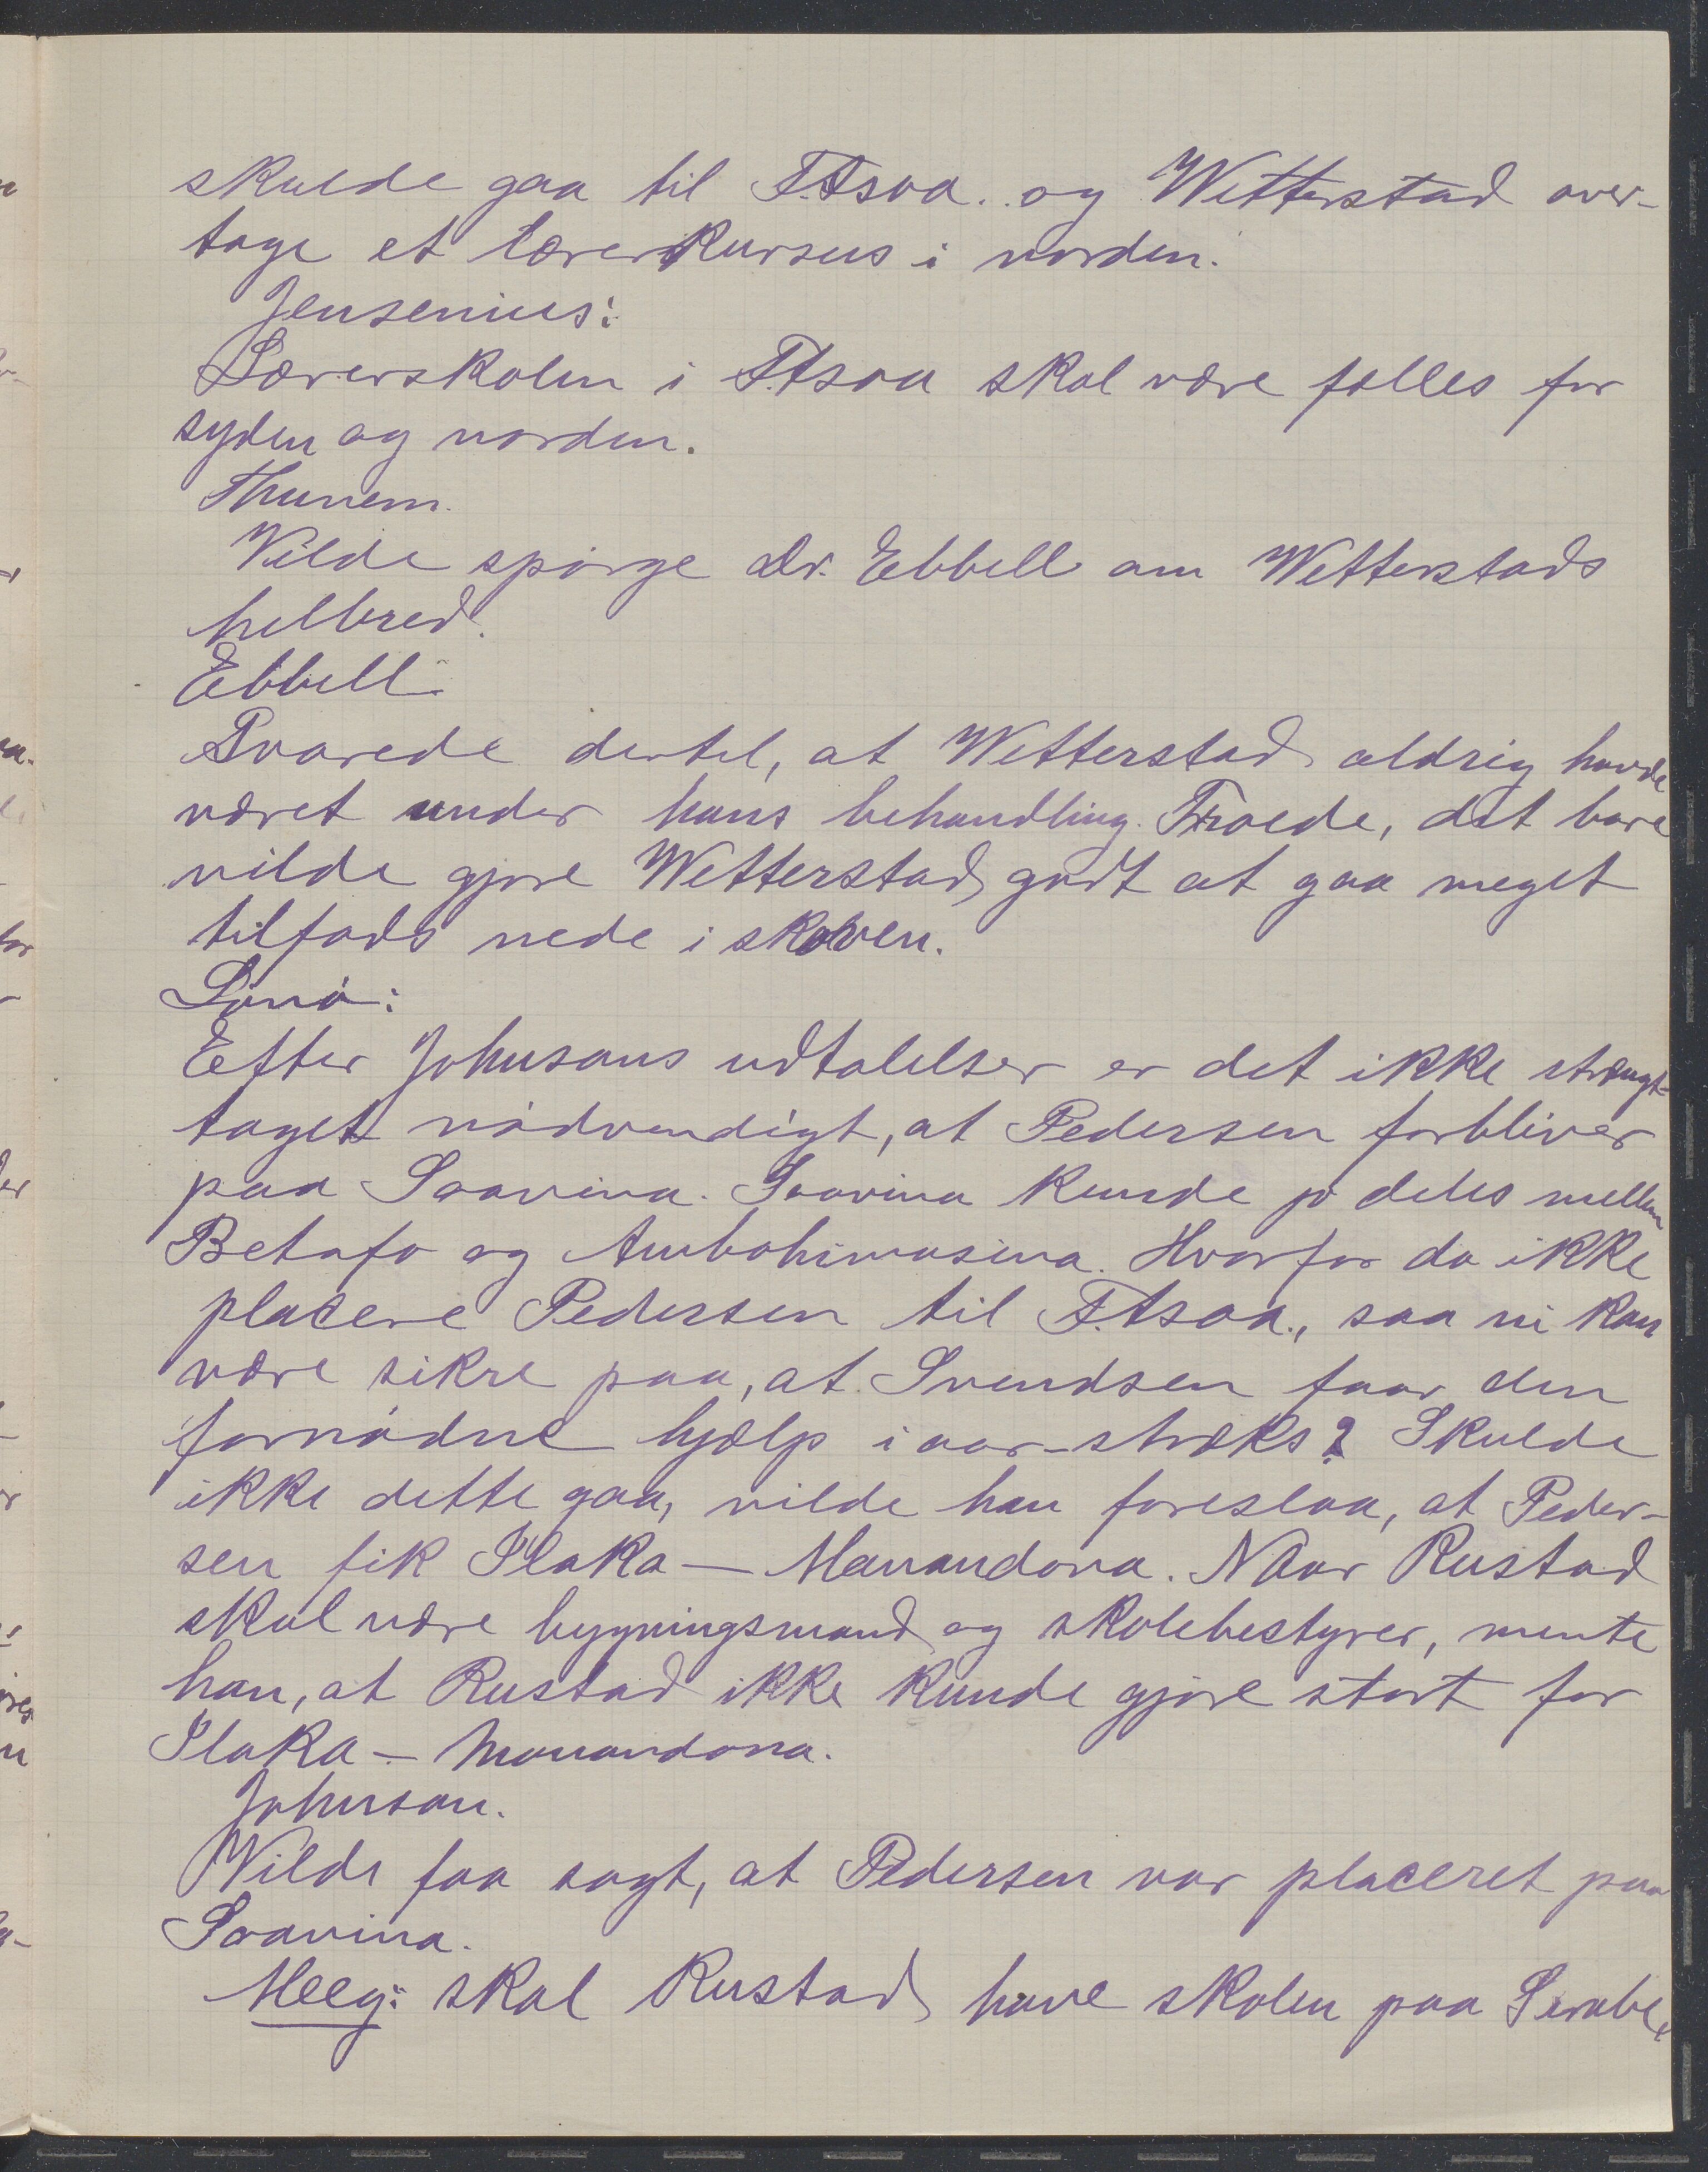 skulde gaa til F.tsoa. og Wetterstad over-
tage et lærerkursus i norden.
Jensenius:
Lærerskolen i F.tsoa skal være fælles for
syden og norden.
Thunem.
Vilde spørge Dr. Ebbell om Wetterstads
helbred.
Ebbell.
Svarede dertil, at Wetterstad aldrig havde
været under hans behandling. Troede, det bare
vilde gjøre Wetterstad godt at gaa meget
tilfods nede i skoven.
Lønø:
Efter Johnsons udtalelser er det ikke strængt-
taget nødvendigt, at Pedersen forbliver
paa Soavina. Soavina kunde jo deles mellem
Betafo og Ambohimasina. Hvorfor da ikke
placere Pedersen til F.tsoa., saa vi kan
være sikre paa, at Svendsen faar den
fornødne hjælp i aar-straks? Skulde
ikke dette gaa, vilde han foreslaa, at Peder-
sen fik Ilaka — Manandona. Naar Rustad
skal være bygningsmand og skolebestyrer, mente
han, at Rustad ikke kunde gjøre stort for
Ilaka — Manandona.
Johnson.
Vilde faa sagt, at Pedersen var placeret paa
Soavina.
Meeg: skal Rustad have skolen paa Sirabe,